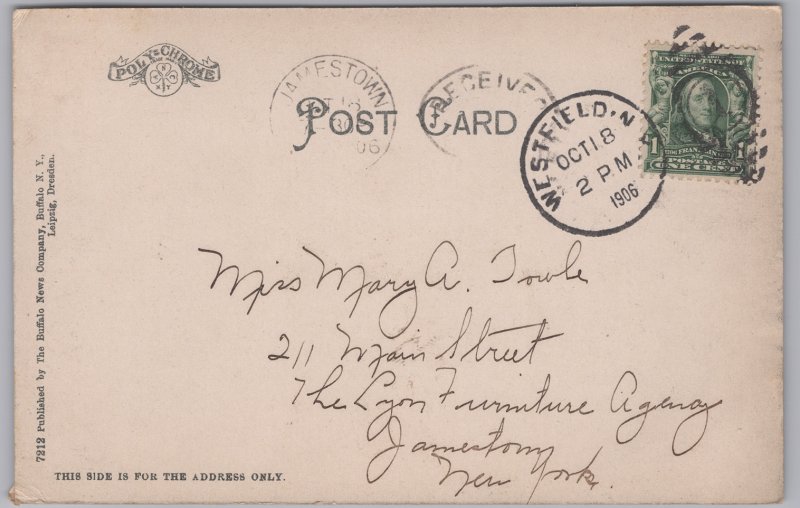 POLY-CHROME
JAMESTOWN
06
RECEIVED
POST CARD
WESTFIELD, N
OCT 18
2 PM
1906
UNITED STATES OF
AMERICA
1 1
POSTAGE
ONE CENT
Miss Mary A. Towle
211 Main Street
The Lyon Furniture Agency
Jamestown
New York.
7212 Published by The Buffalo News Company, Buffalo N. Y.,
Leipzig, Dresden.
THIS SIDE IS FOR THE ADDRESS ONLY.